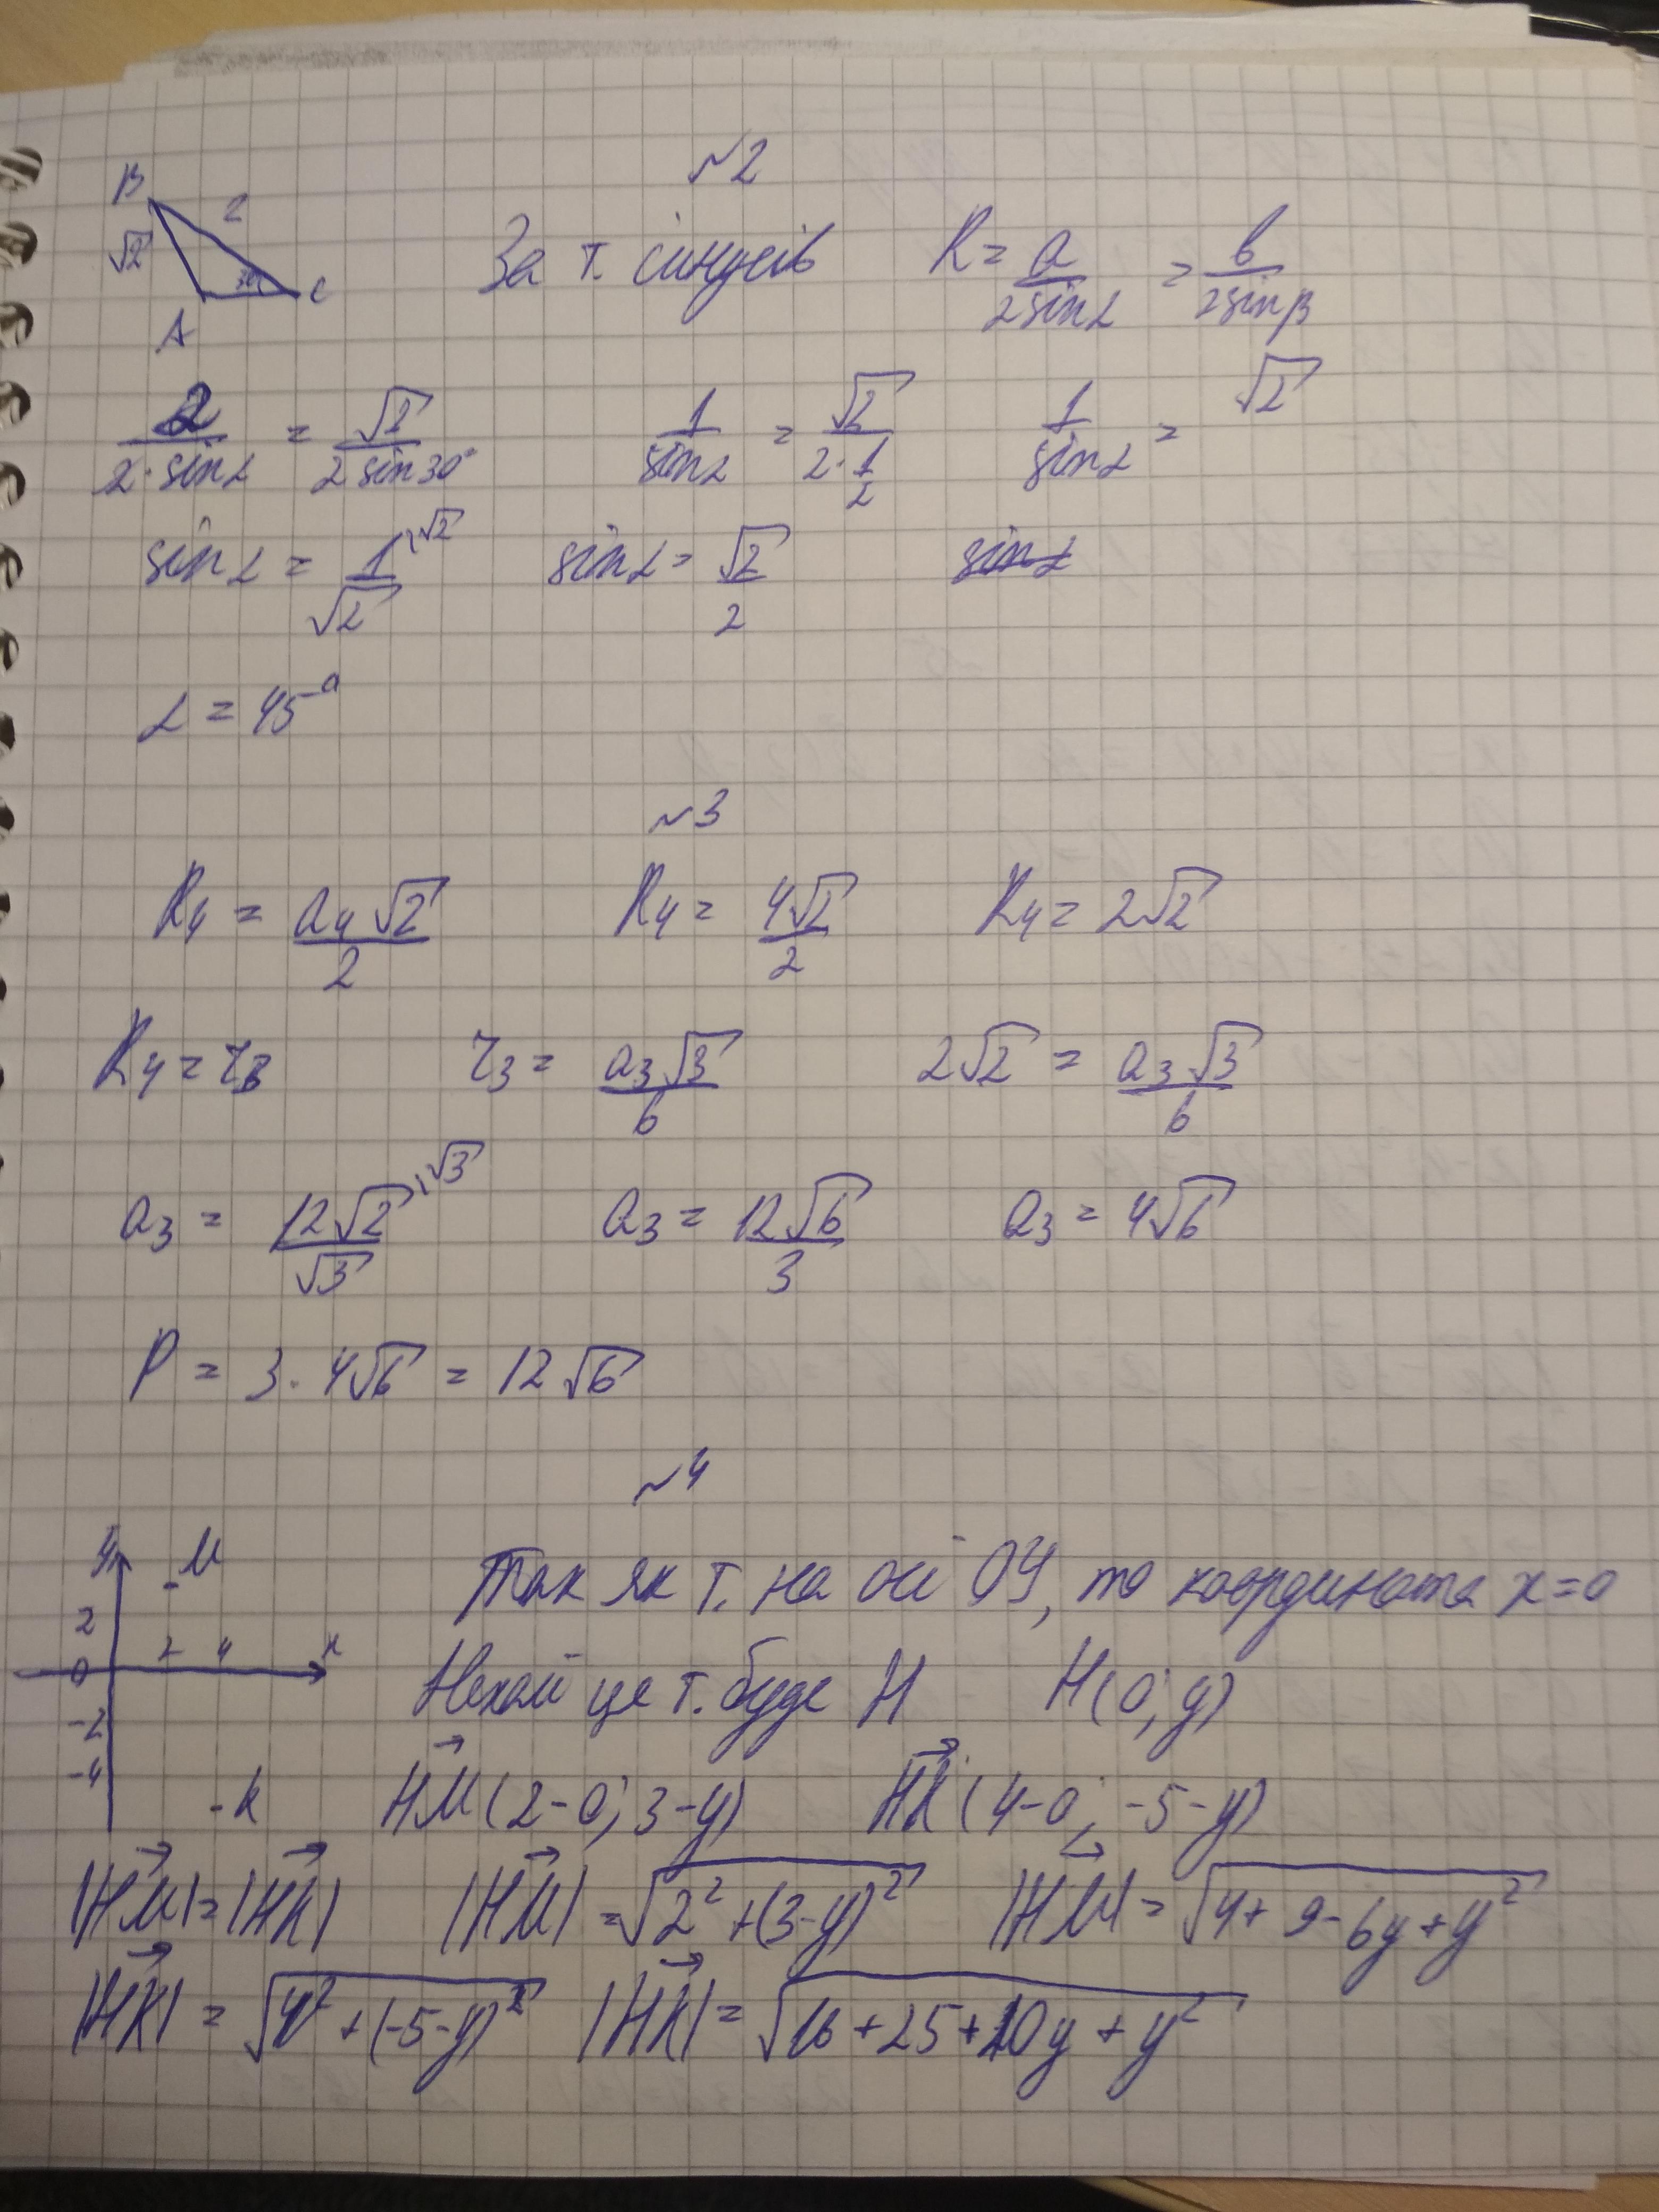 №2
B
2
√2
30°
C
A
За т. синусів R = a/(2sinα) = b/(2sinβ)
2/(2·sinα) = √2/(2sin30°) 1/sinα = √2/(2·1/2) 1/sinα = √2
sinα = 1/√2 \√2 sinα = √2/2
α = 45°
№3
R₄ = a₄√2/2 R₄ = 4√2/2 R₄ = 2√2
R₄ = r₃ r₃ = a₃√3/6 2√2 = a₃√3/6
a₃ = 12√2/√3 \√3 a₃ = 12√6/3 a₃ = 4√6
P = 3·4√6 = 12√6
№4
y
M
2
0
2 4 x
-2
-4
K
Так як т. на осі OY, то координата x=0
Нехай це т. буде H H(0; y)
HM→(2-0; 3-y) HK→(4-0; -5-y)
|HM→| = |HK→| |HM→| = √(2² + (3-y)²) |HM→| = √(4+9-6y+y²)
|HK→| = √(4² + (-5-y)²) |HK→| = √(16+25+10y+y²)